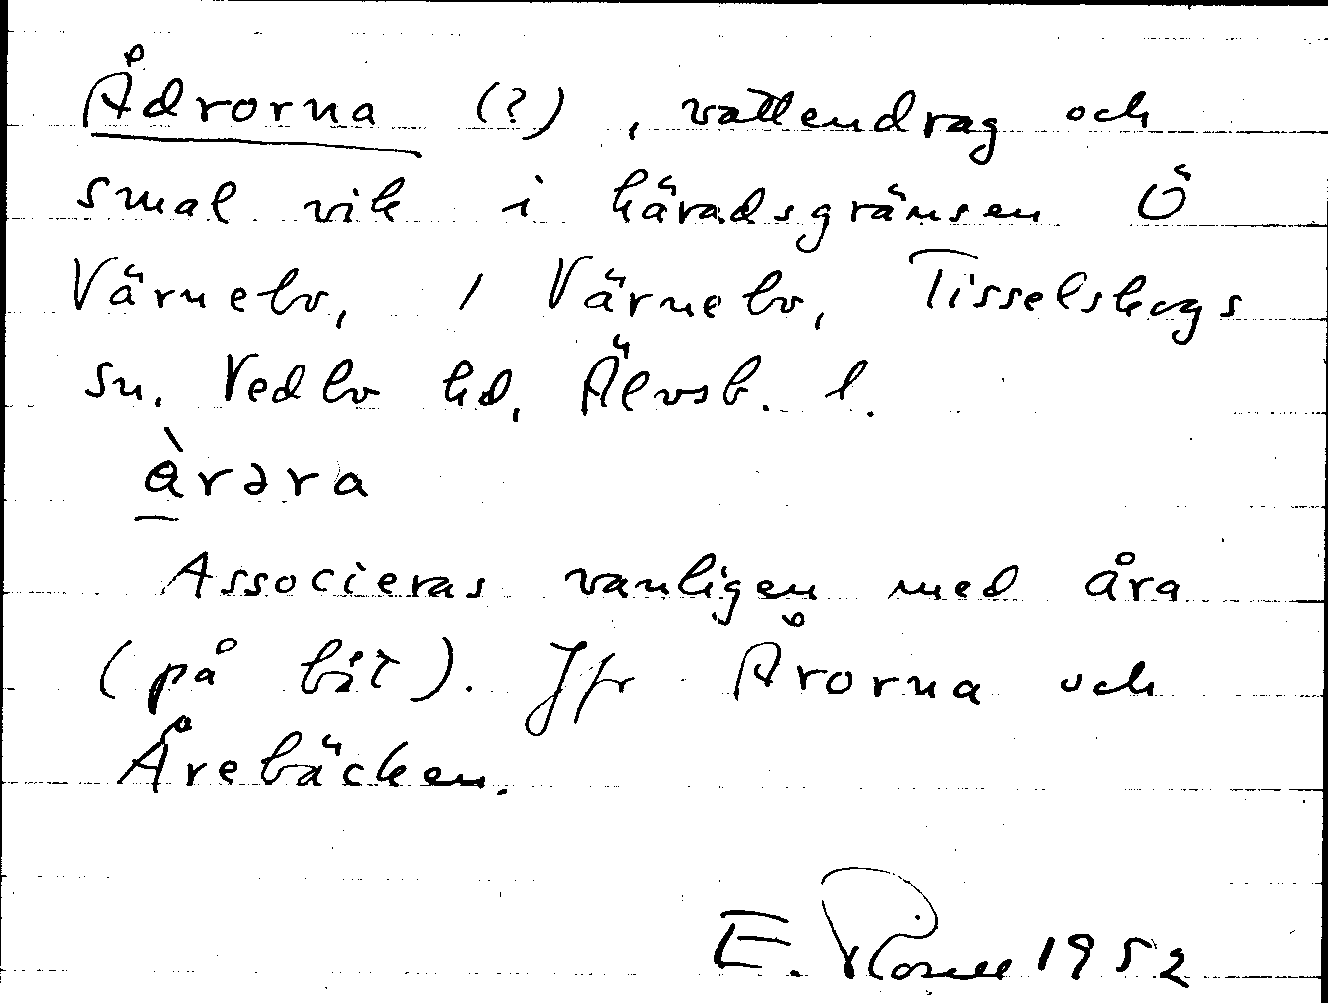 Ådrorna (?), vattendrag och
smal vik i häradsgränsen Ö
Värnebo, 1 Värnebo, Tisselskogs
sn. Vedbo hd, Älvsb. l.
àrəra
Associeras vanligen med åra
(på båt). Jfr Årorna och
Årebäcken.
E. 1952